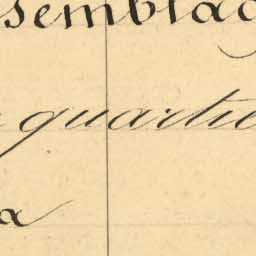 semblag
quartie
a